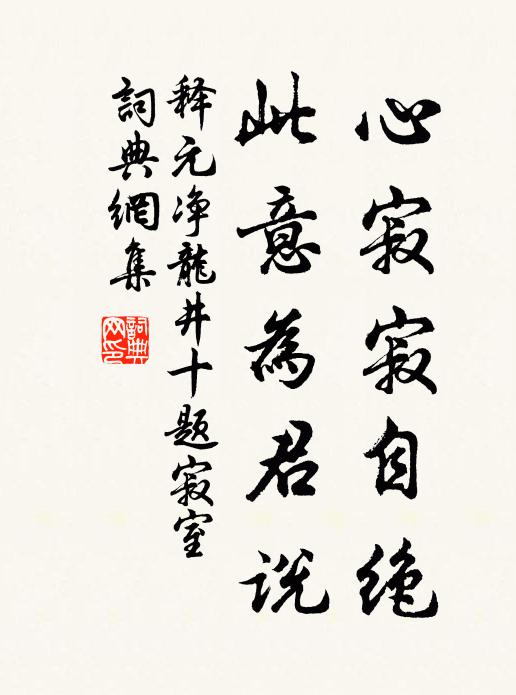 心寂寂自绝
此意為君说
释元净龍井十题寂室
詞典網集
詞典網印